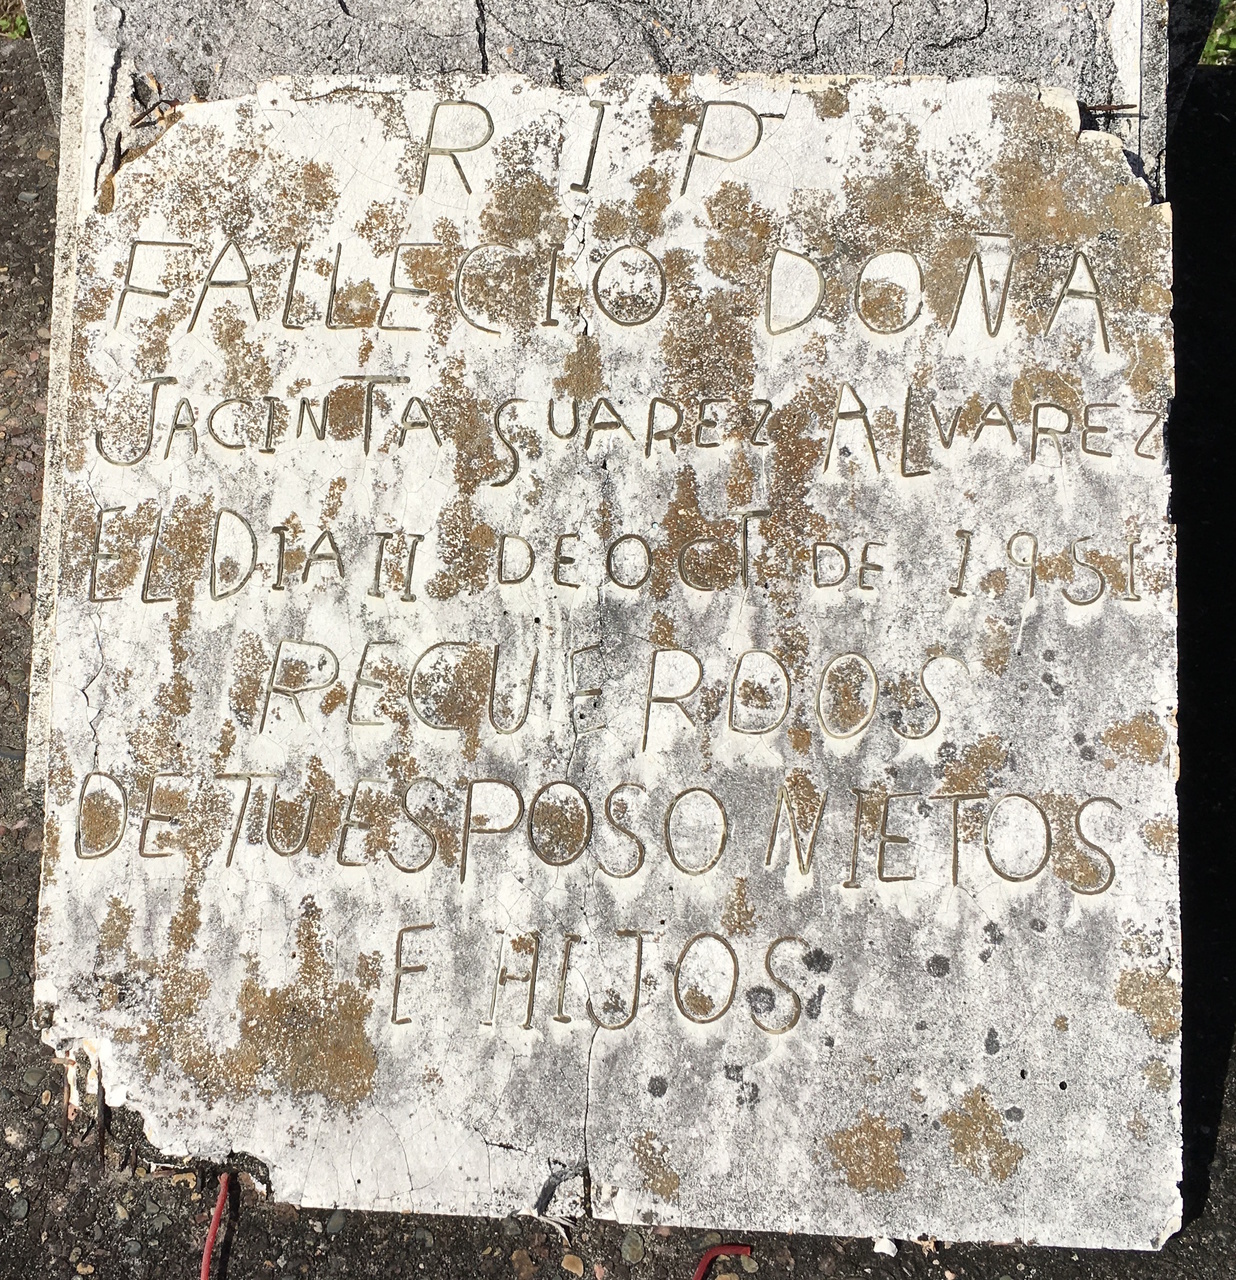 RIP
FALLECIO DOÑA
JACINTA SUAREZ ALVAREZ
EL DIA II DE OCT DE 1951
RECUERDOS
DE TU ESPOSO NIETOS
E HIJOS